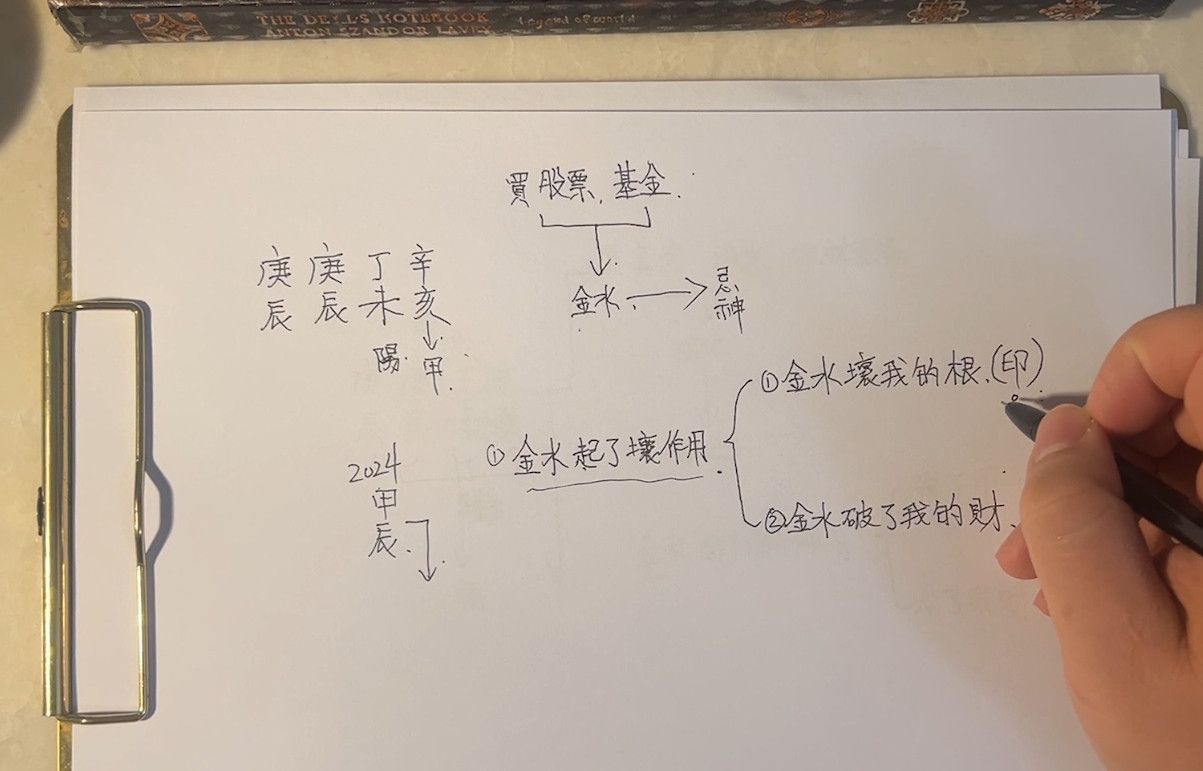 THE DEVIL'S NOTEBOOK
ANTON SZANDOR LAVEY
Legend of world
買股票、基金.
金水. → 忌神
庚 庚 丁 辛
辰 辰 未 亥
陽. 甲.
2024
甲
辰.
①金水起了壞作用.
①金水壞我的根、(印).
②金水破了我的財、